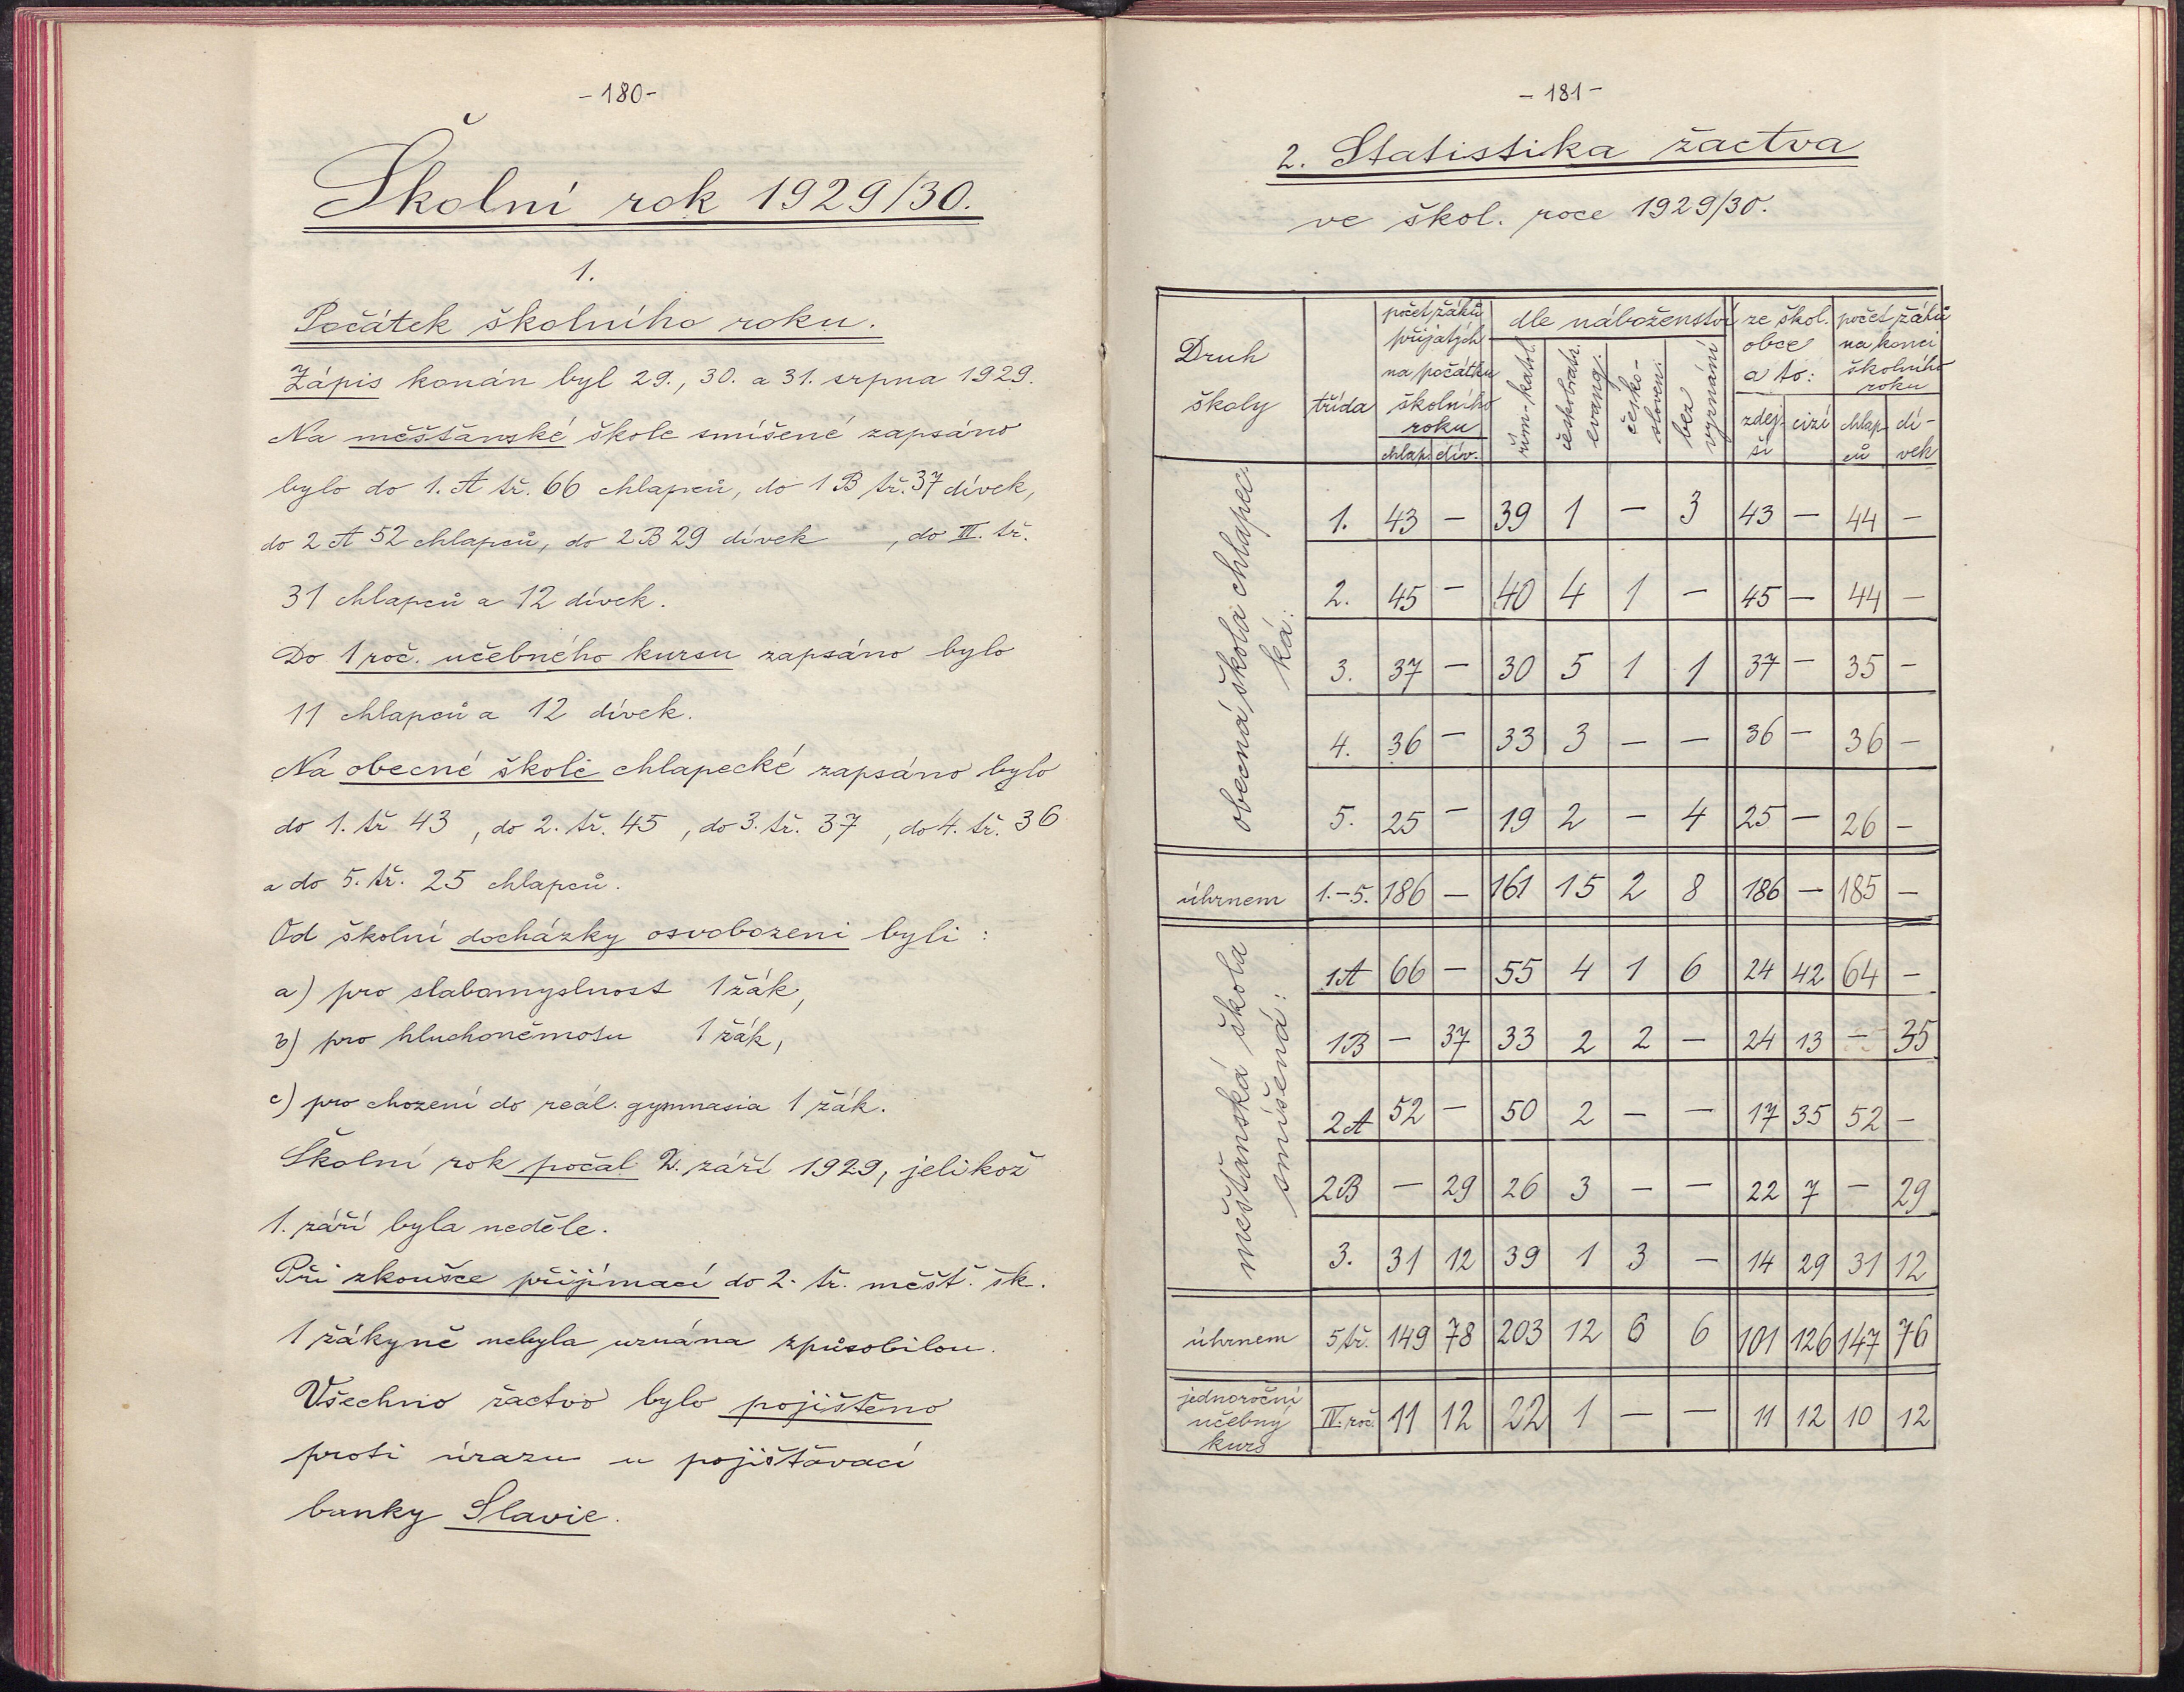 -180-
Školní rok 1929/30.
1.
Počátek školního roku.
Zápis konán byl 29., 30. a 31. srpna 1929.
Na měšťanské škole smíšené zapsáno
bylo do 1. A tř. 66 chlapců, do 1 B tř. 37 dívek,
do 2 A 52 chlapců, do 2 B 29 dívek , do III. tř.
31 chlapců a 12 dívek.
Do 1 roč. učebného kursu zapsáno bylo
11 chlapců a 12 dívek.
Na obecné škole chlapecké zapsáno bylo
do 1. tř 43 , do 2. tř. 45 , do 3. tř. 37 , do 4. tř. 36
a do 5. tř. 25 chlapců.
Od školní docházky osvobozeni byli :
a) pro slabomyslnost 1 žák,
b) pro hluchoněmotu 1 žák,
c) pro chození do reál. gymnasia 1 žák.
Školní rok počal 2. září 1929, jelikož
1. září byla neděle.
Při zkoušce přijímací do 2. tř. měšť. šk.
1 žákyně nebyla uznána způsobilou.
Všechno žactvo bylo pojištěno
proti úrazu u pojišťovací
banky Slavie.
-181-
2. Statistika žactva
ve škol. roce 1929/30.
Druh školy | třída | počet žáků přijatých na počátku školního roku | dle náboženství | ze škol. obce a to: | počet žáků na konci školního roku
chlap. | dív. | řím-katol. | českobratr. evang. | česko-sloven. | bez vyznání | zdej-ší | cizí | chlap-ců | dí-vek
obecná škola chlapec-ká:
1. 43 — 39 1 — 3 43 — 44 —
2. 45 — 40 4 1 — 45 — 44 —
3. 37 — 30 5 1 1 37 — 35 —
4. 36 — 33 3 — — 36 — 36 —
5. 25 — 19 2 — 4 25 — 26 —
úhrnem 1.-5. 186 — 161 15 2 8 186 — 185 —
měšťanská škola smíšená:
1A 66 — 55 4 1 6 24 42 64 —
1B — 37 33 2 2 — 24 13 — 35
2A 52 — 50 2 — — 17 35 52 —
2B — 29 26 3 — — 22 7 — 29
3. 31 12 39 1 3 — 14 29 31 12
úhrnem 5 tř. 149 78 203 12 6 6 101 126 147 76
jednoroční učebný kurs IV. roč. 11 12 22 1 — — 11 12 10 12